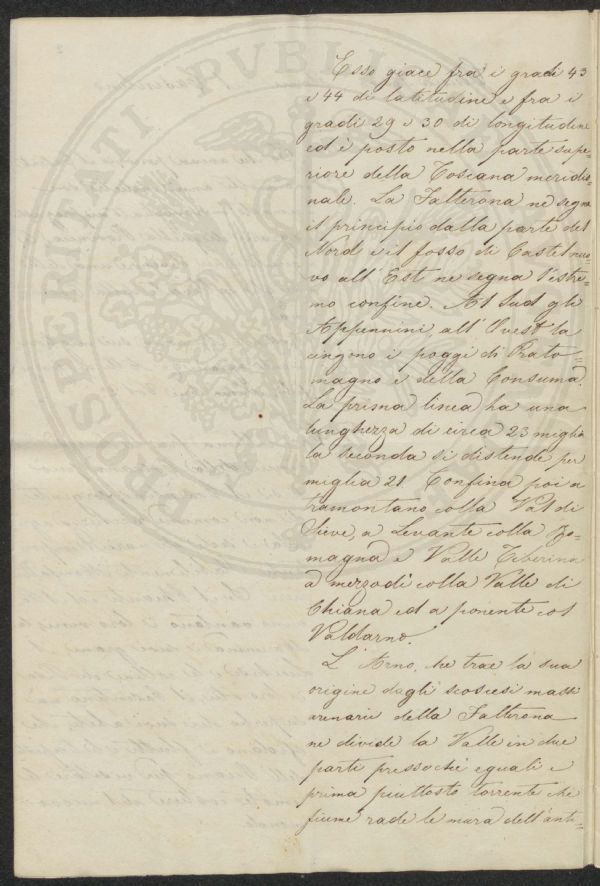 Esso giace fra i gradi 43
e 44 di latitudine e fra i
gradi 29 e 30 di longitudine
ed è posto nella parte supe=
riore della Toscana meridio=
nale. La Falterona ne segna
il principio dalla parte del
Nord e il fosso di Castelnuo=
vo all'Est ne segna l'estre=
mo confine. Al Sud gli
Appennini, all'Ovest la
cingono i poggi di Prato=
magno e della Consuma.
La prima linea ha una
lunghezza di circa 23 miglia
la seconda si distende per
miglia 21. Confina poi a
tramontano colla Val di
Sieve, a Levante colla Ro=
magna e Valle Tiberina
a mezzodì colla Valle di
Chiana ed a ponente col
Valdarno.
L'Arno, che trae la sua
origine dagli scoscesi massi
arenarii della Falterona
ne divide la Valle in due
parti pressochè eguali e
prima piuttosto torrente che
fiume rade le mura dell'anti=
PROSPERITATI PVBLI